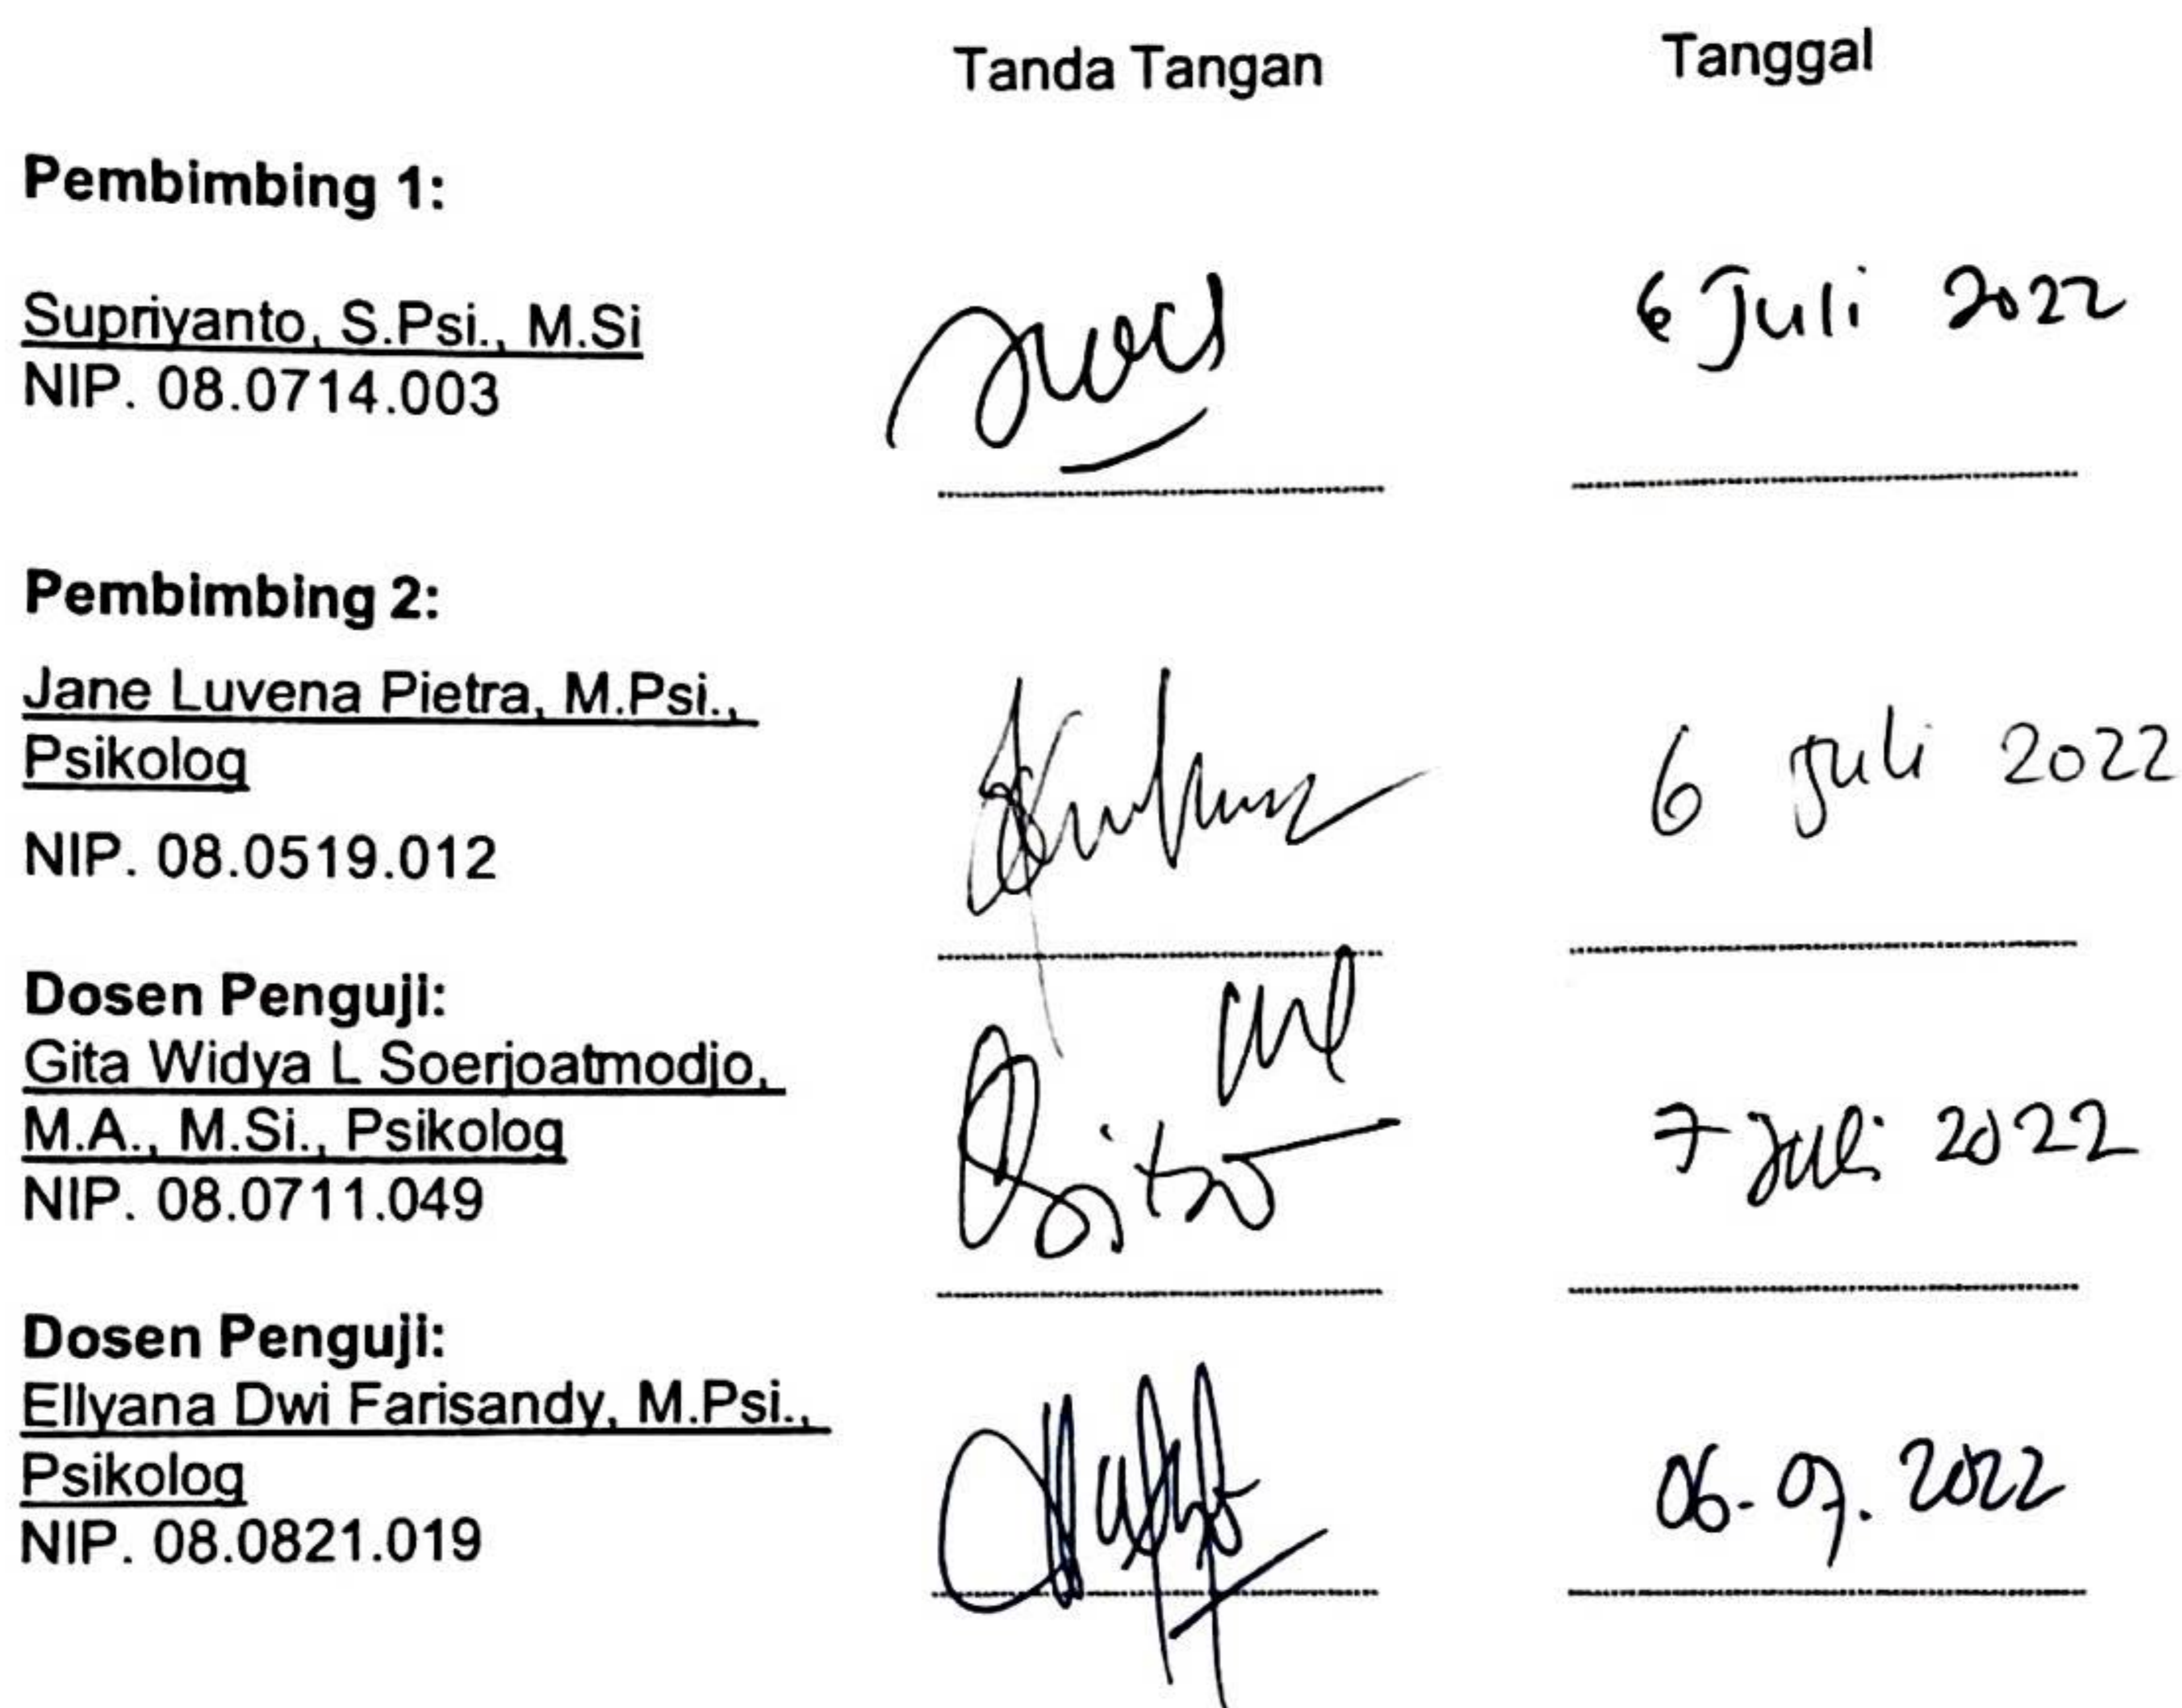 Tanda Tangan Tanggal
Pembimbing 1:
Supriyanto, S.Psi., M.Si
NIP. 08.0714.003
6 Juli 2022
Pembimbing 2:
Jane Luvena Pietra, M.Psi.,
Psikolog
NIP. 08.0519.012
6 Juli 2022
Dosen Penguji:
Gita Widya L Soerjoatmodjo,
M.A., M.Si., Psikolog
NIP. 08.0711.049
7 Juli 2022
Dosen Penguji:
Ellyana Dwi Farisandy, M.Psi.,
Psikolog
NIP. 08.0821.019
06-07.2022